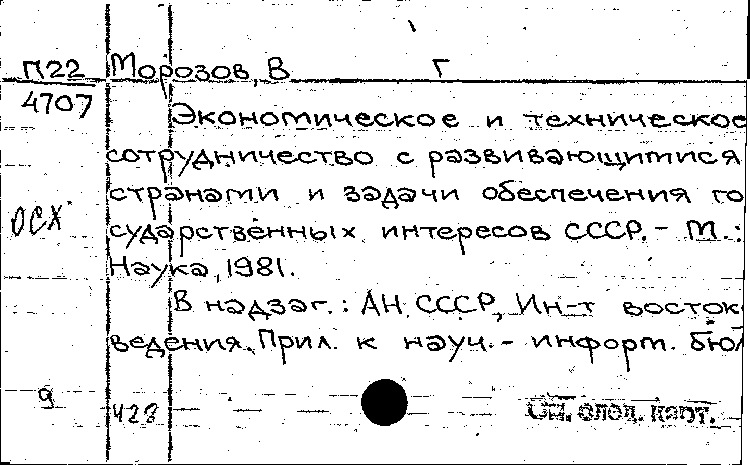 П22 Морозов, В Г
4707
Экономическое и техническое
сотрудничество с развивающимися
странами и задачи обеспечения го
ОСХ
сударственных интересов СССР. – М.:
Наука, 1981.
В надзаг.: АН СССР, Ин-т восток
ведения. Прил. к науч. – информ. бюл
9
428
См. след. карт.